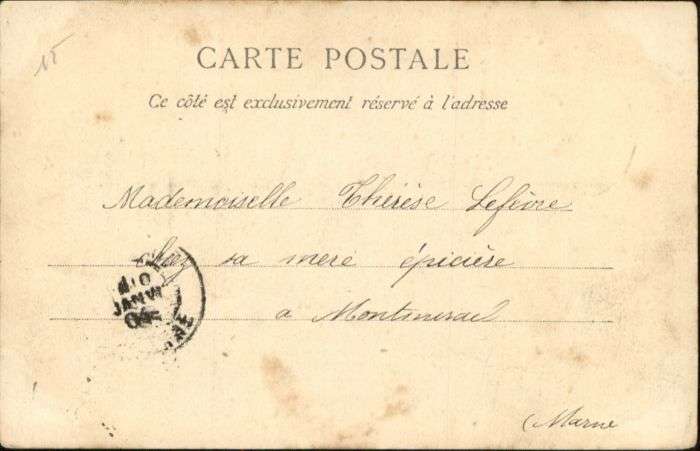 15
CARTE POSTALE
Ce côté est exclusivement réservé à l'adresse
Mademoiselle Thérèse Lefèvre
Chez sa mère épicière
a Montmirail
10
JANVI
05
Marne